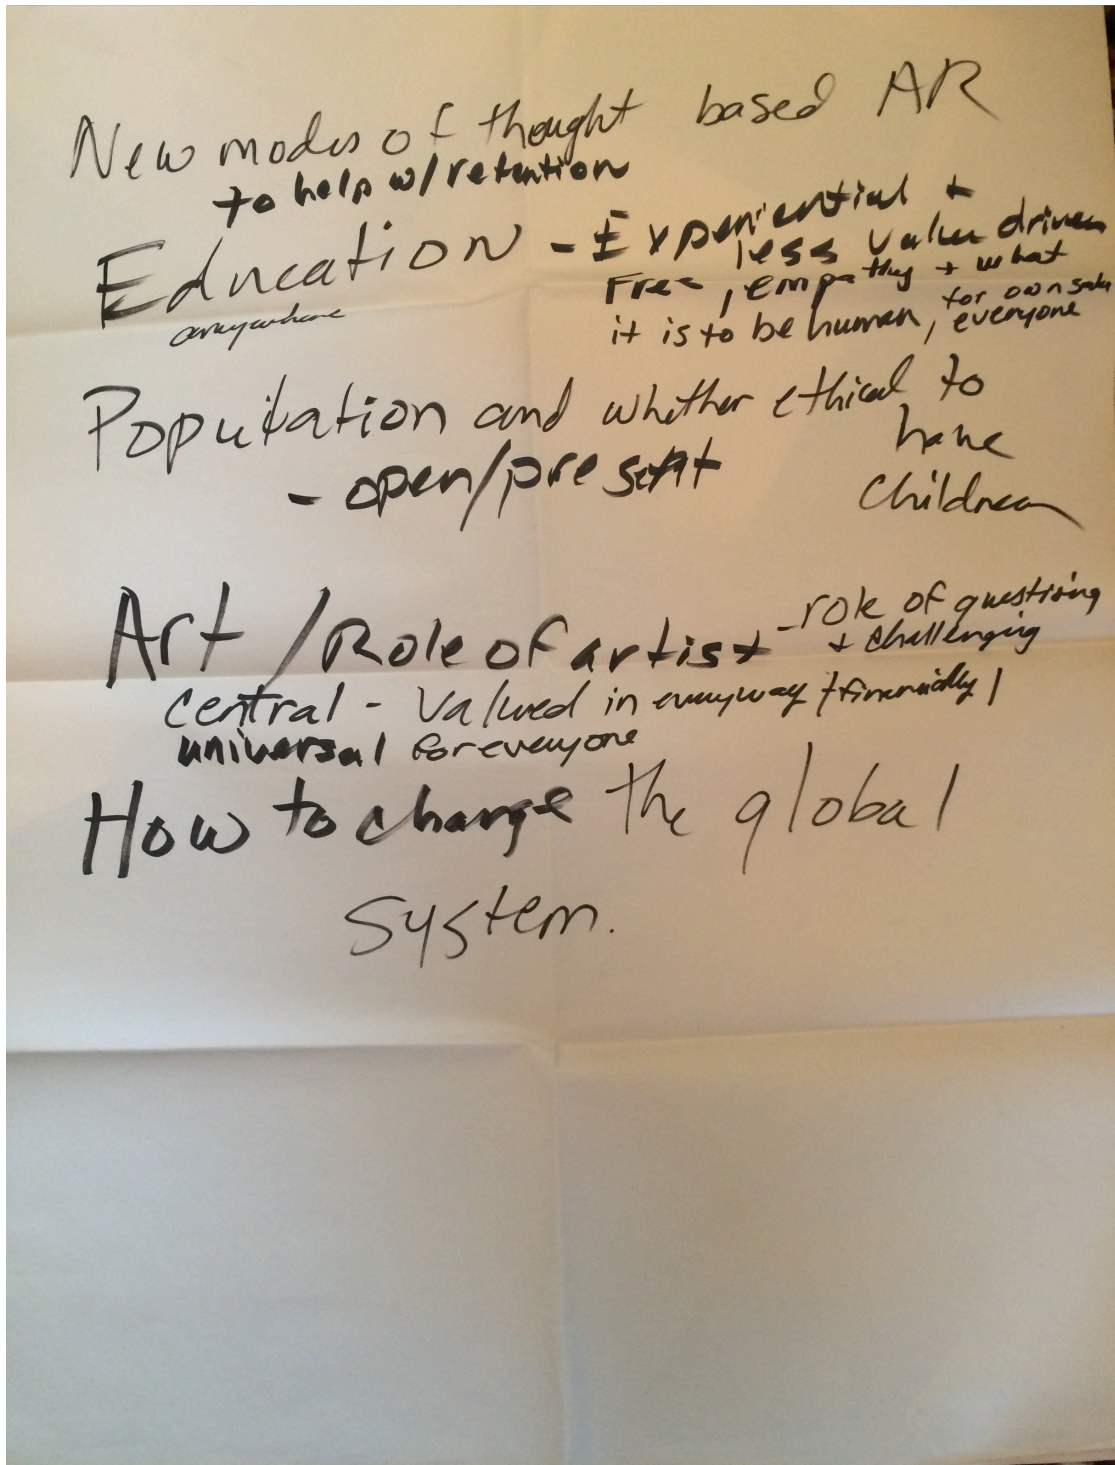 New modes of thought based AR
to help w/retention
Education - Experiential +
less value driven
Free, empathy + what
it is to be human, for own sake
everyone
anywhere
Population and whether ethical to
have
children
- open/present
Art / Role of artist - role of questioning
+ challenging
central - valued in everyway +financially /
universal for everyone
How to change the global
system.